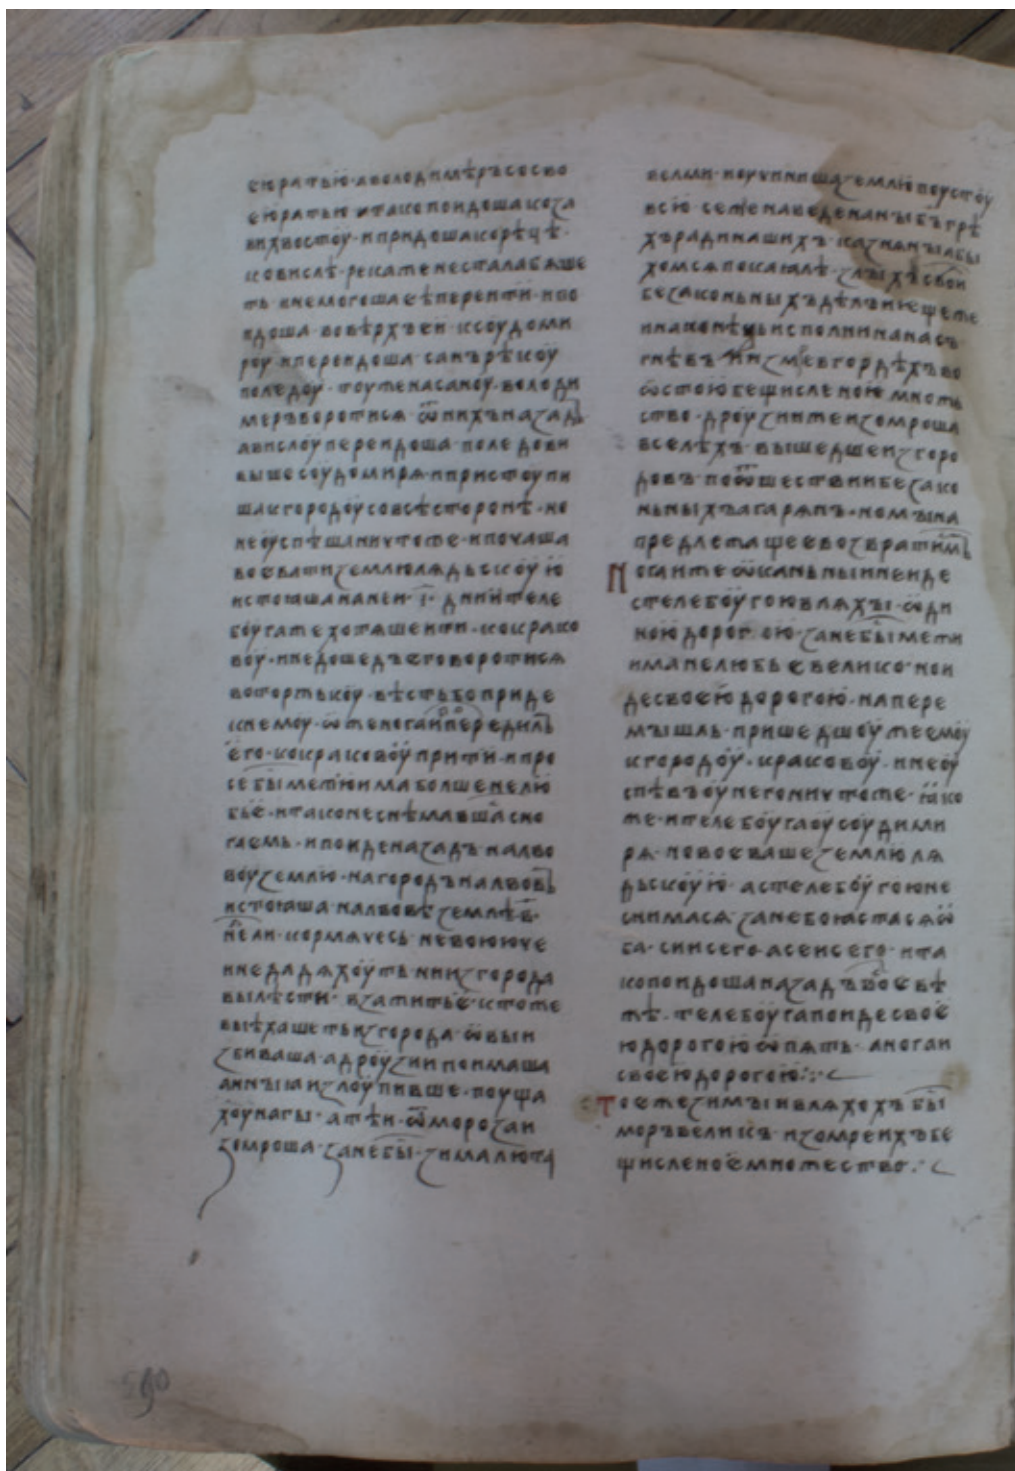 еюратьюⷤ·аволодимѣръсосво
еюратью·итакопоидошакоза
вихвостоу·ипридошакорѣцѣ·
ковислѣ·рекаженесталабѧше
ть·инемогошаеѣперенти·ипо
идоша·вовѣрхъеи·ксоудоми
роу·иперендоша·санърѣкоу
поледоу·тоутжена·саноу·володи
меръворотисѧ·ѿнихъназадъ
ависл​оуперендоша·поледови
вышесоудомирѧ·ипристоупи
шакгородоусовсѣсторонѣ·но
неоуспѣшаничтоже·ипочаша
воеватиземлюлѧдьскоую
истоꙗшананеи·і·днии·теле
боугажехотѧшеити·кокрако
воу·инедошедъеговоротисѧ
воторжькоу·вѣстьбоприде
кнемоу·ѿженогаипередилъ
его·кокраковоуприти·ипро
себыⷭмежюимаболшенелю
бье·итаконеснѣмавшасѧсно
гаемь·ипоиденазадъ·налво
воуземлю·нагородъналвовъ
истоꙗша·налвовѣземлѣ·в҃·
нⷣели·кормѧчесь·невоююче
инедадѧхоуть·нинзгорода
вылѣсти·взажитье·ктоже
выѣхашетьизгорода·ѿвыи
збиваша·адроузииноимаша
аиныꙗизлоупивше·поуща
хоунагы·атѣи·ѿморозаи
зомроша·занебыⷭ·зималюта
велми·ноучинишаземлюпоустоу
всю·сежена​веденаныбъгрѣ
хърадинашихъ·казнѧныабы
хомсѧпокаꙗлѣ·злыхъсвои
безаконьныхъдѣлъ·иещеже
инаконѣцьисполнинанасъ·
гнѣвъ
ѿстоюбещисленоюмножь
ство·дроузиижеизомроша
вселѣхъ·вышедшеизгоро
довъ·поѿшествиибезако
ньныхъагарѧнъ·номына
предлежащеевозвратимъ
Ногаижеѿканьныинеиде
стелебоугоювлѧхы·ѿди
ноюдорог·ою·занебыⷭмежи
иманелюбьевелико·нои
десвоеюдорогою·напере
мышль·пришедшоужеемоу
кгородоу·краковоу·инеоу
спѣвъоунегоничтоже·ꙗко
же·ителебоугаоусоудими
рѧ·новоевашеземлюлѧ
дьскоую·астелебоугоюне
снимасѧ·занебоюастасѧѿ
ба·сиисего·асеисего·ита
копоидошаназадъвосвѣ
жѣ·телебоугапоидесвоє
юдорогоюѿпѧть·аногаи
своеюдорогою:·
Тоежезимыивлѧхохъбыⷭ
моръвеликъ·изомреихъбе
щисленоемножество:·